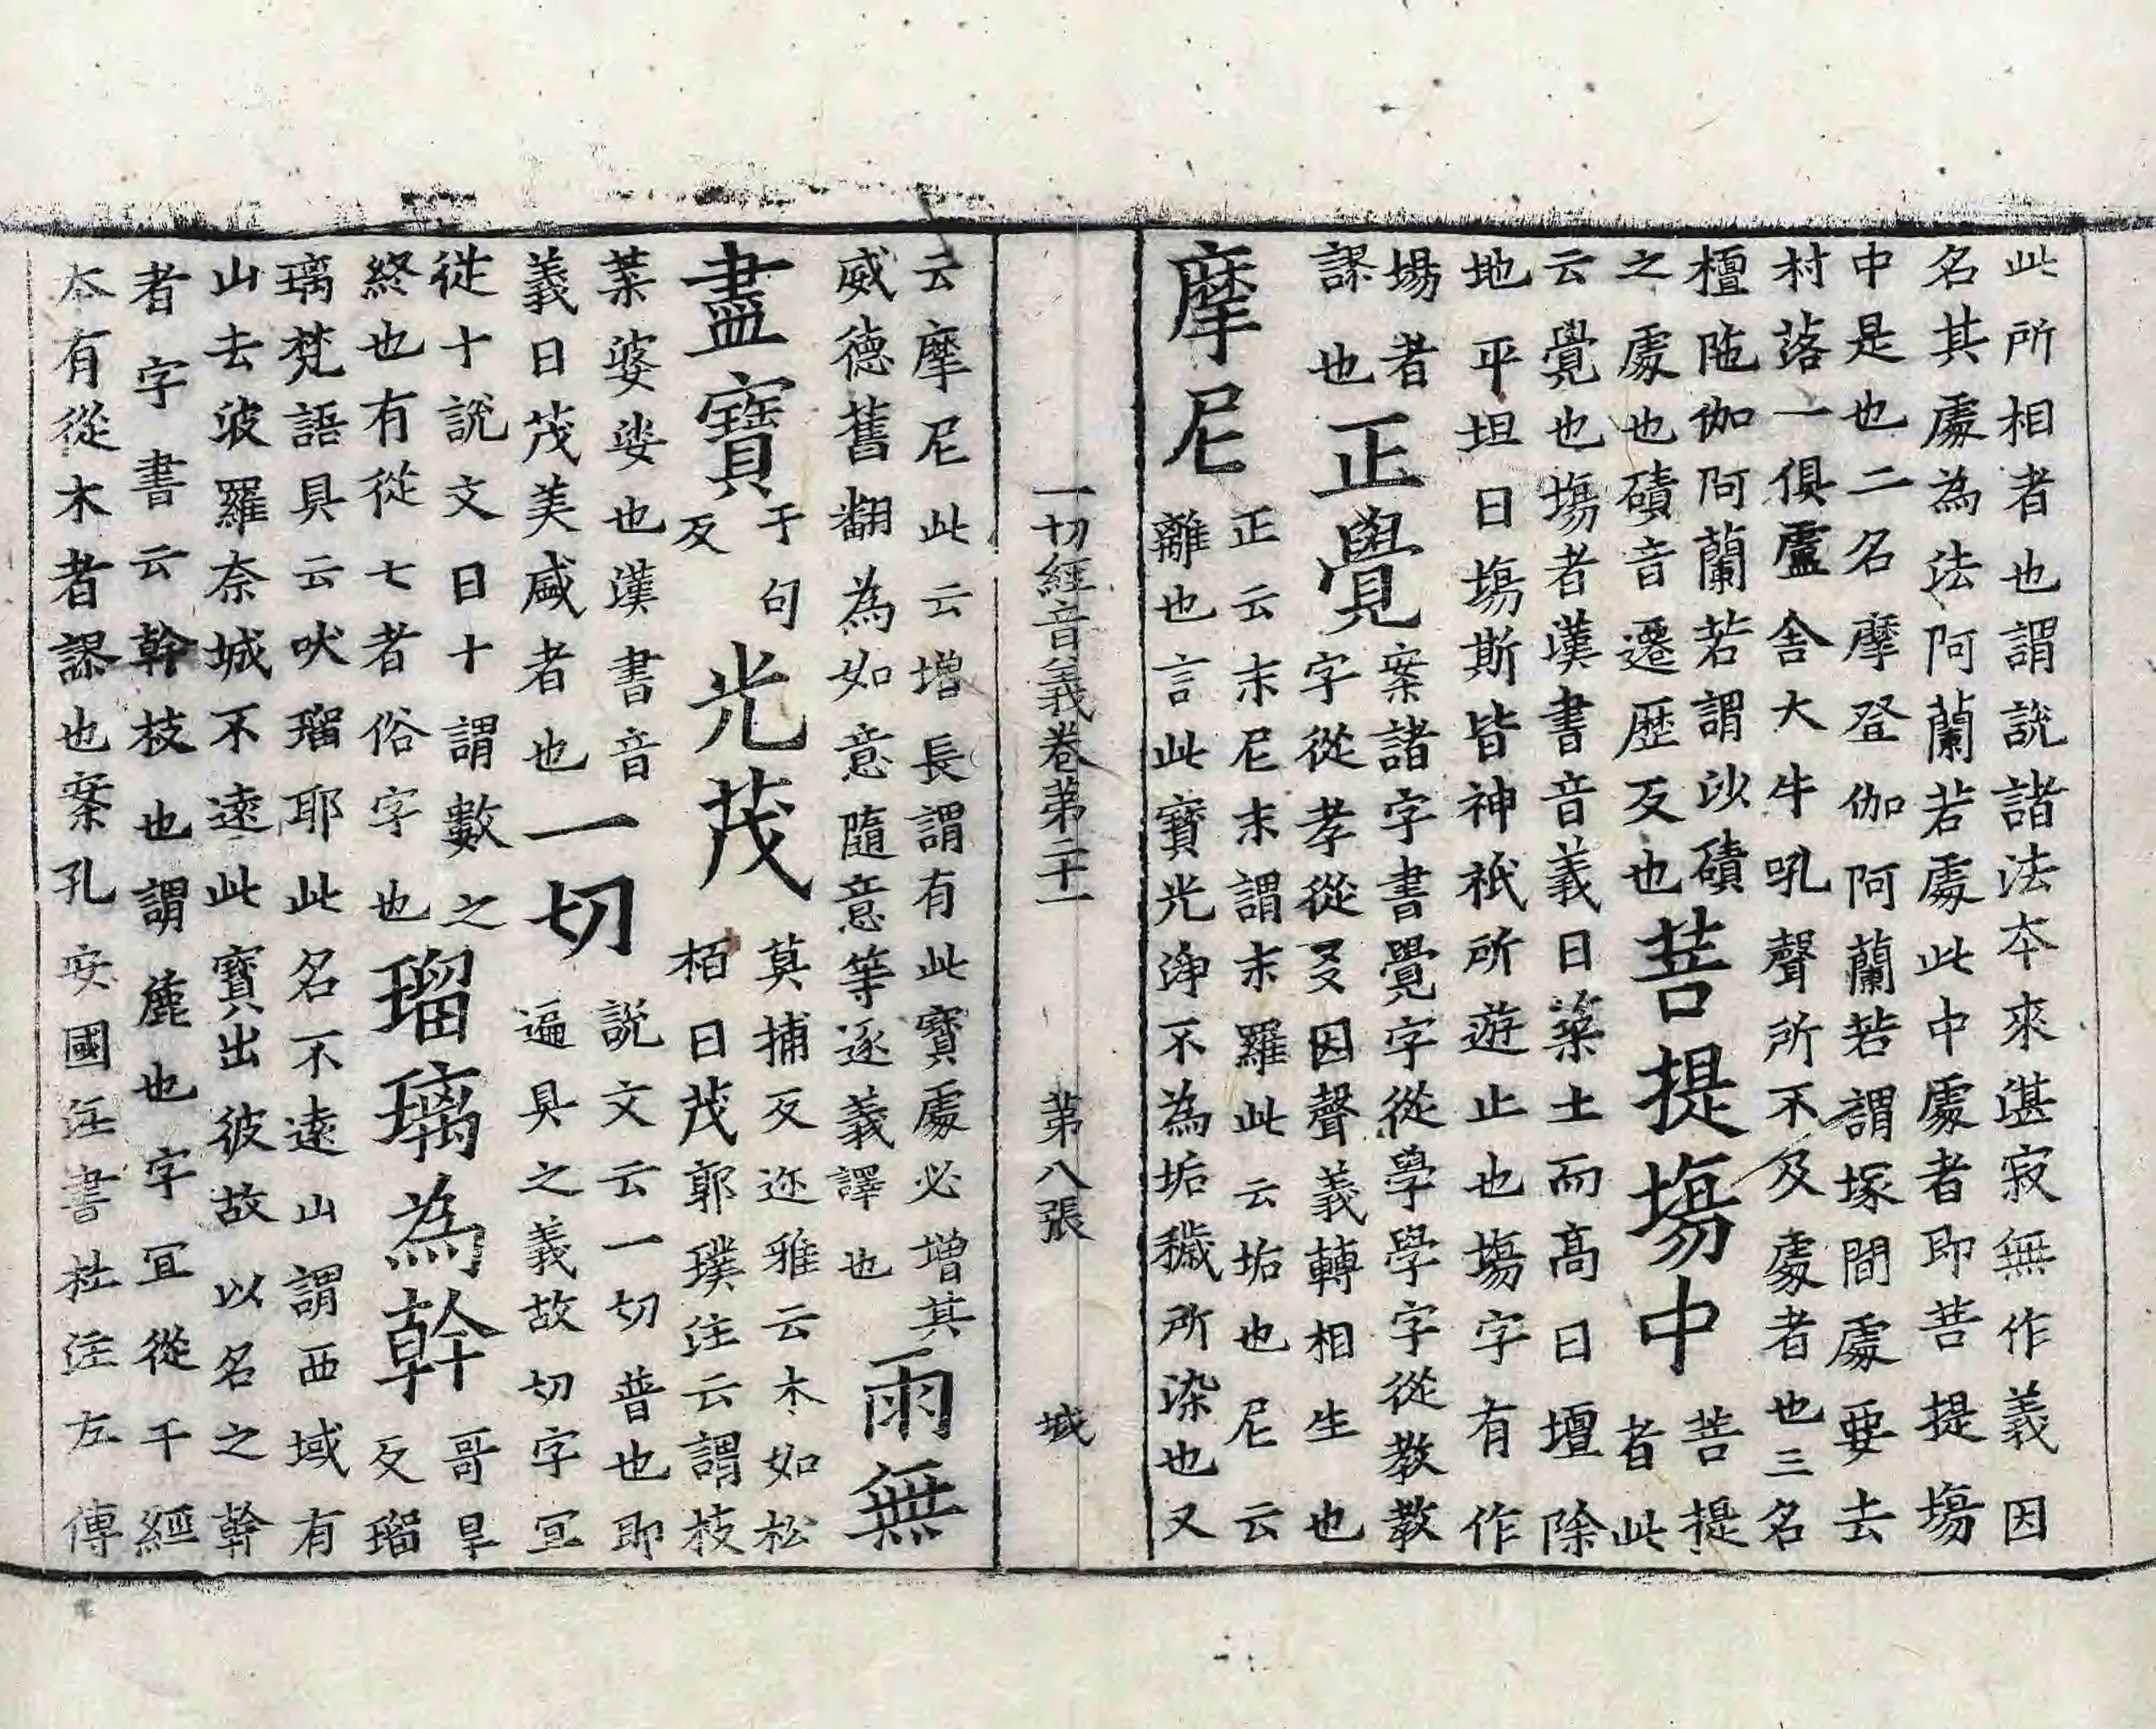 此所相者也謂說諸法夲來湛寂無作義因
名其處為法阿蘭若處此中處者即菩提塲
中是也二名摩登伽阿蘭若謂塚間處要去
村落一俱盧舍大牛吼聲所不及處者也三名
檀陁伽阿蘭若謂沙磧
之處也磧音遷歷反也
菩提塲中
菩提
者此
云覺也塲者漢書音義曰築土而高曰壇除
地平坦曰塲斯皆神祇所遊止也塲字有作
場者
謬也
正覺
案諸字書覺字從學學字從教教
字從孝從爻因聲義轉相生也
摩尼
正云末尼末謂末羅此云垢也尼云
離也言此寶光淨不為垢穢所染也又
一切經音義卷第二十一 第八張 城
云摩尼此云增長謂有此寶處必增其
威德舊翻為如意隨意等逐義譯也
雨無
盡寶
于句
反
光茂
莫捕反迩雅云木如松
栢曰茂郭璞注云謂枝
葉婆娑也漢書音
義曰茂美盛者也
一切
說文云一切普也即
遍具之義故切字冝
從十說文曰十謂數之
終也有從七者俗字也
瑠璃為幹
哥旱
反瑠
璃梵語具云吠瑠耶此名不遠山謂西域有
山去波羅奈城不遠此寶出彼故以名之幹
者字書云幹枝也謂麁也字冝從干經
夲有從木者謬也案孔安國注書杜注左傳